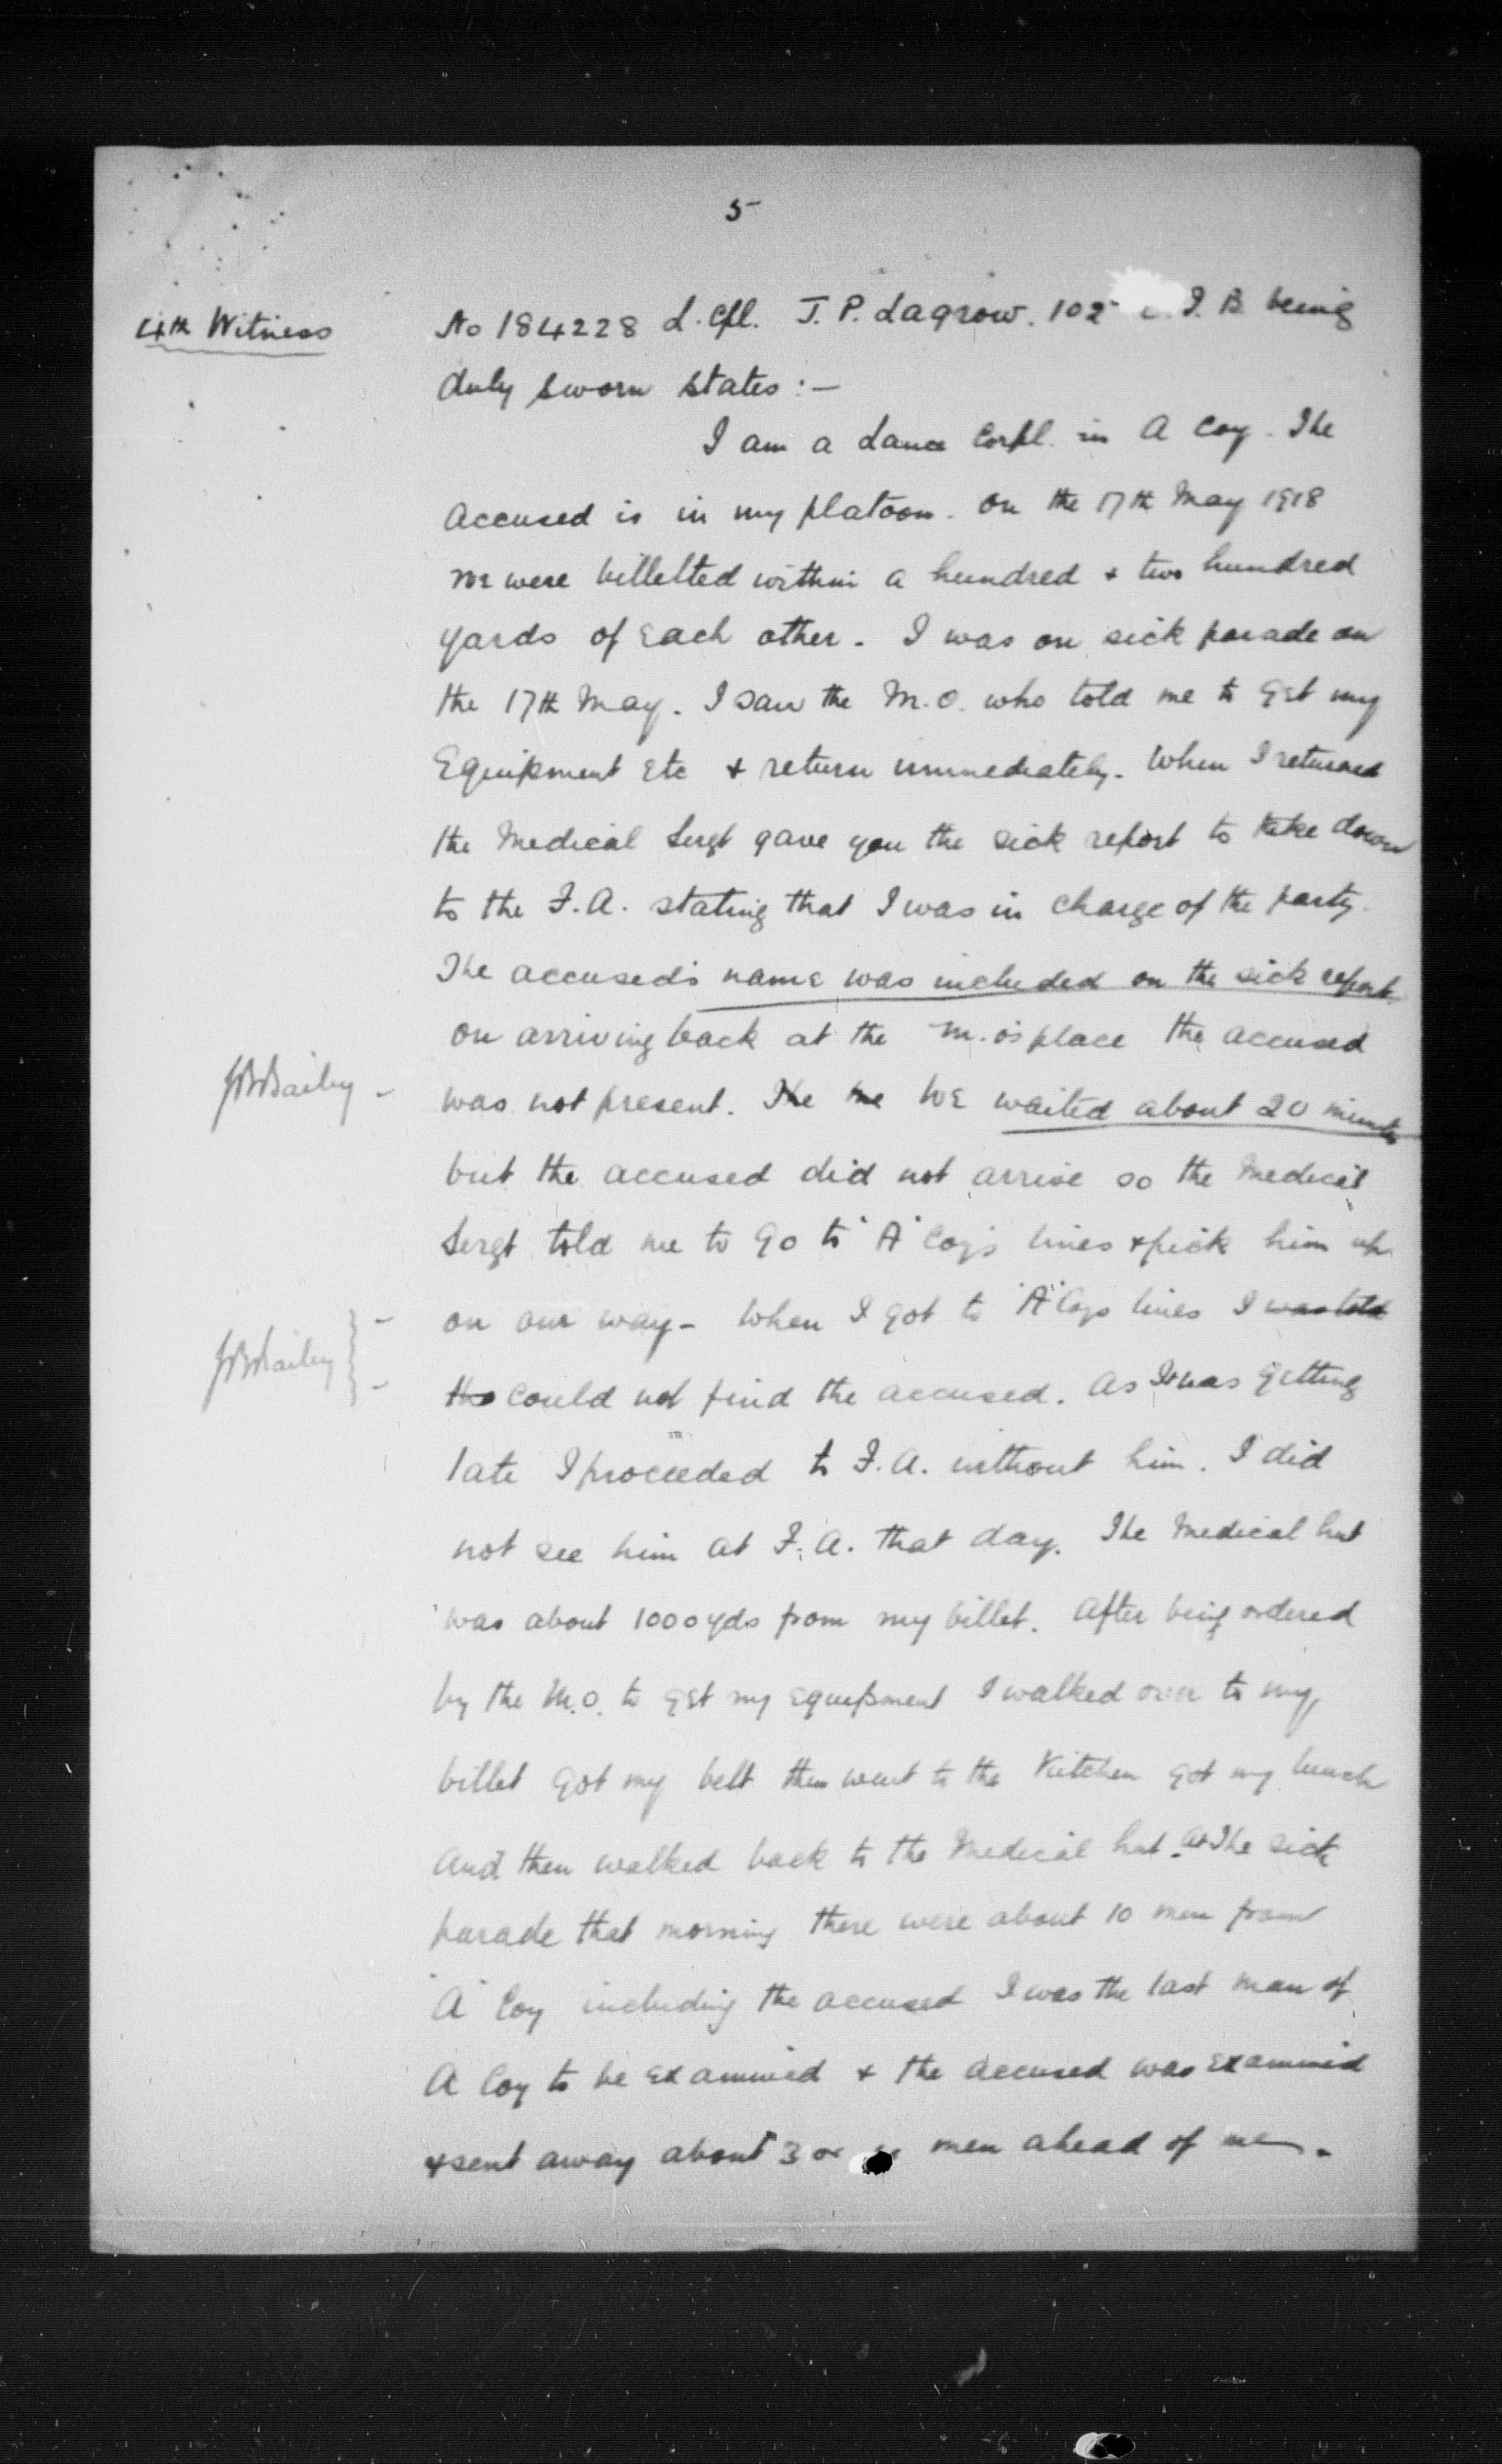 5
4th Witness
No 184228 L. Cpl. J. P. Lagrow. 102 I. B. being
duly sworn states :—
I am a Lance Corpl. in A Coy. The
accused is in my platoon. On the 17th May 1918
we were billetted within a hundred + two hundred
yards of each other. I was on sick parade on
the 17th May. I saw the M.O. who told me to get my
Equipment etc + return immediately. When I returned
the Medical Sergt gave you the sick report to take down
to the F.A. stating that I was in charge of the party.
The accused's name was included on the sick report
on arriving back at the M.O's place the accused
JBBailey - was not present. He he We waited about 20 minutes
but the accused did not arrive so the Medical
Sergt told me to go to "A" Coy's lines + pick him up
on our way - When I got to "A" Coys lines I was told
JBBailey } tho could not find the accused. As It was getting
late I proceeded to F.A. without him. I did
not see him at F.A. that day. The Medical hut
was about 1000 yds from my billet. After being ordered
by the M.O. to get my equipment I walked over to my
billet got my belt then went to the Kitchen got my lunch
and then walked back to the Medical hut. At The sick
parade that morning there were about 10 men from
"A" Coy including the accused I was the last man of
A Coy to be examined + the accused was examined
+ sent away about 3 or men ahead of me.